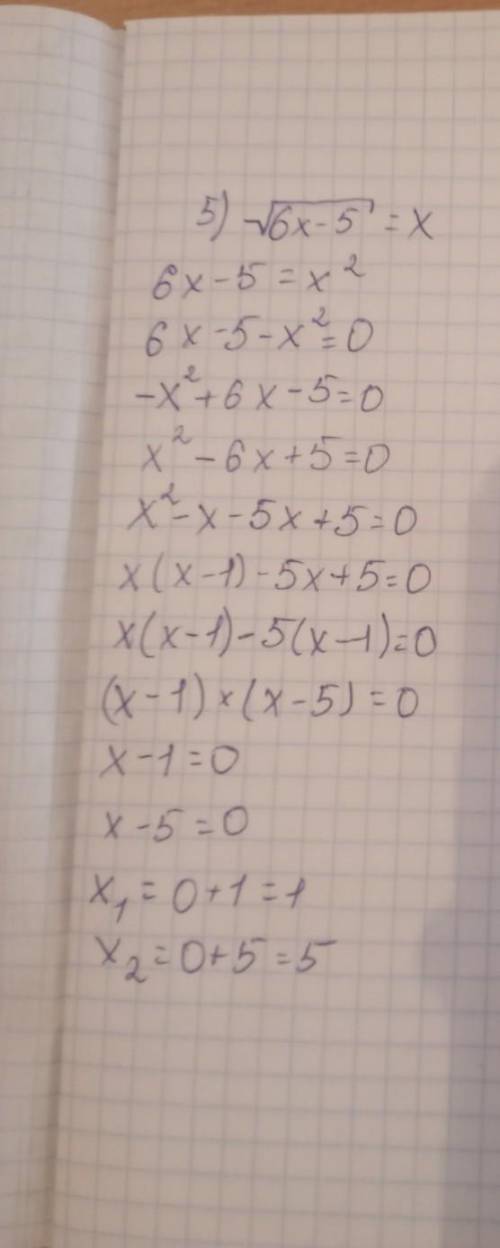 5) √6x-5 = x
6x-5 = x²
6x-5-x²=0
-x²+6x-5=0
x²-6x+5=0
x²-x-5x+5=0
x(x-1)-5x+5=0
x(x-1)-5(x-1)=0
(x-1)×(x-5)=0
x-1=0
x-5=0
x₁=0+1=1
x₂=0+5=5